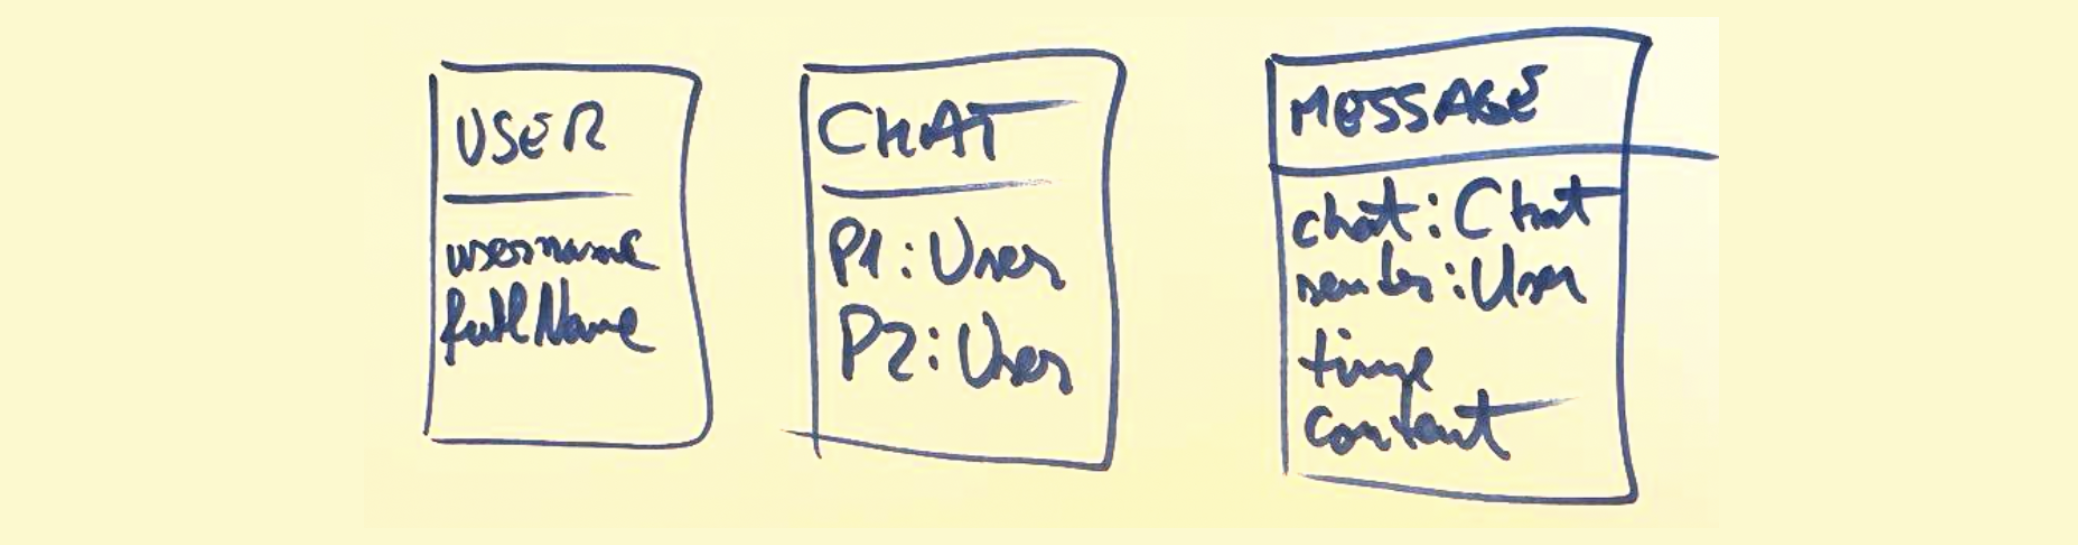 USER
username
fullName
CHAT
P1: User
P2: User
MESSAGE
chat: Chat
sender: User
time
content